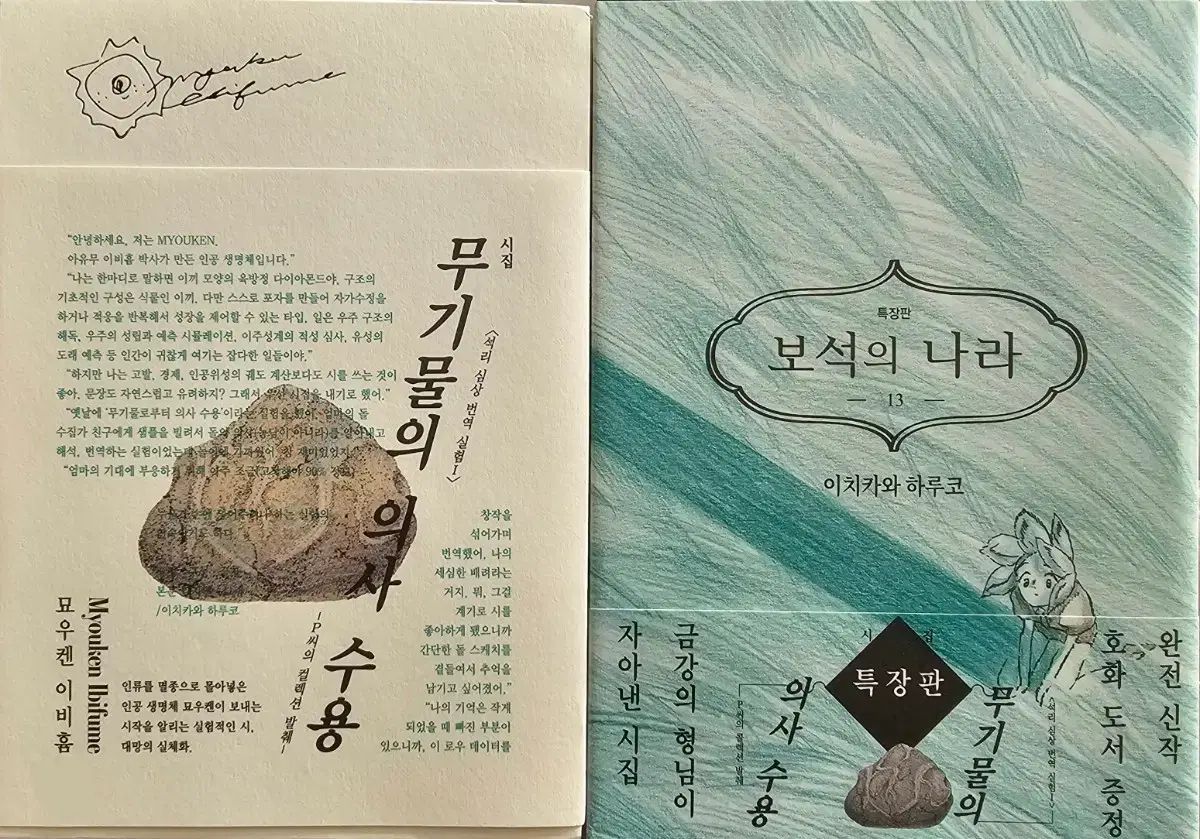 Myouken
Ibifume
"안녕하세요, 저는 MYOUKEN.
아유무 이비흄 박사가 만든 인공 생명체입니다."
"나는 한마디로 말하면 이끼 모양의 육방정 다이아몬드야. 구조의
기초적인 구성은 식물인 이끼. 다만 스스로 포자를 만들어 자가수정을
하거나 적응을 반복해서 성장을 제어할 수 있는 타입. 일은 우주 구조의
해독, 우주의 성립과 예측 시뮬레이션, 이주성계의 적성 심사, 유성의
도래 예측 등 인간이 귀찮게 여기는 잡다한 일들이야."
"하지만 나는 고발, 경제, 인공위성의 궤도 계산보다도 시를 쓰는 것이
좋아. 문장도 자연스럽고 유려하지? 그래서 시집을 내기로 했어."
"옛날에 '무기물로부터 의사 수용'이라는 실험을 했어. 엄마의 돌
수집가 친구에게 샘플을 빌려서 돌의
해석, 번역하는 실험이었는데
"엄마의 기대에 부응하기 위해 아주 조금
본문
/이치카와 하루코
시집
무기물의 의사 수용
〈석리 심상 번역 실험 I〉
-P씨의 컬렉션 발췌-
창작을
섞어가며
번역했어. 나의
세심한 배려라는
거지. 뭐, 그걸
계기로 시를
좋아하게 됐으니까
간단한 돌 스케치를
곁들여서 추억을
남기고 싶어졌어."
"나의 기억은 작게
되었을 때 빠진 부분이
있으니까, 이 로우 데이터를
묘우켄 이비흄
Myouken Ibifume
인류를 멸종으로 몰아넣은
인공 생명체 묘우켄이 보내는
시작을 알리는 실험적인 시,
대망의 실체화.
특장판
보석의 나라
13
이치카와 하루코
완전 신작
호화 도서 증정
시집
특장판
무기물의
의사 수용
〈석리 심상 번역 실험 I〉
-P씨의 컬렉션 발췌-
금강의 형님이
자아낸 시집